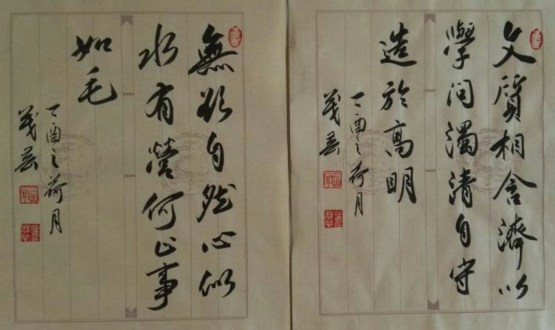 文質相含濟以
學问濁清自守
造於高明
丁酉之荷月
無欲自然心似
水有營何止事
如毛
丁酉之荷月